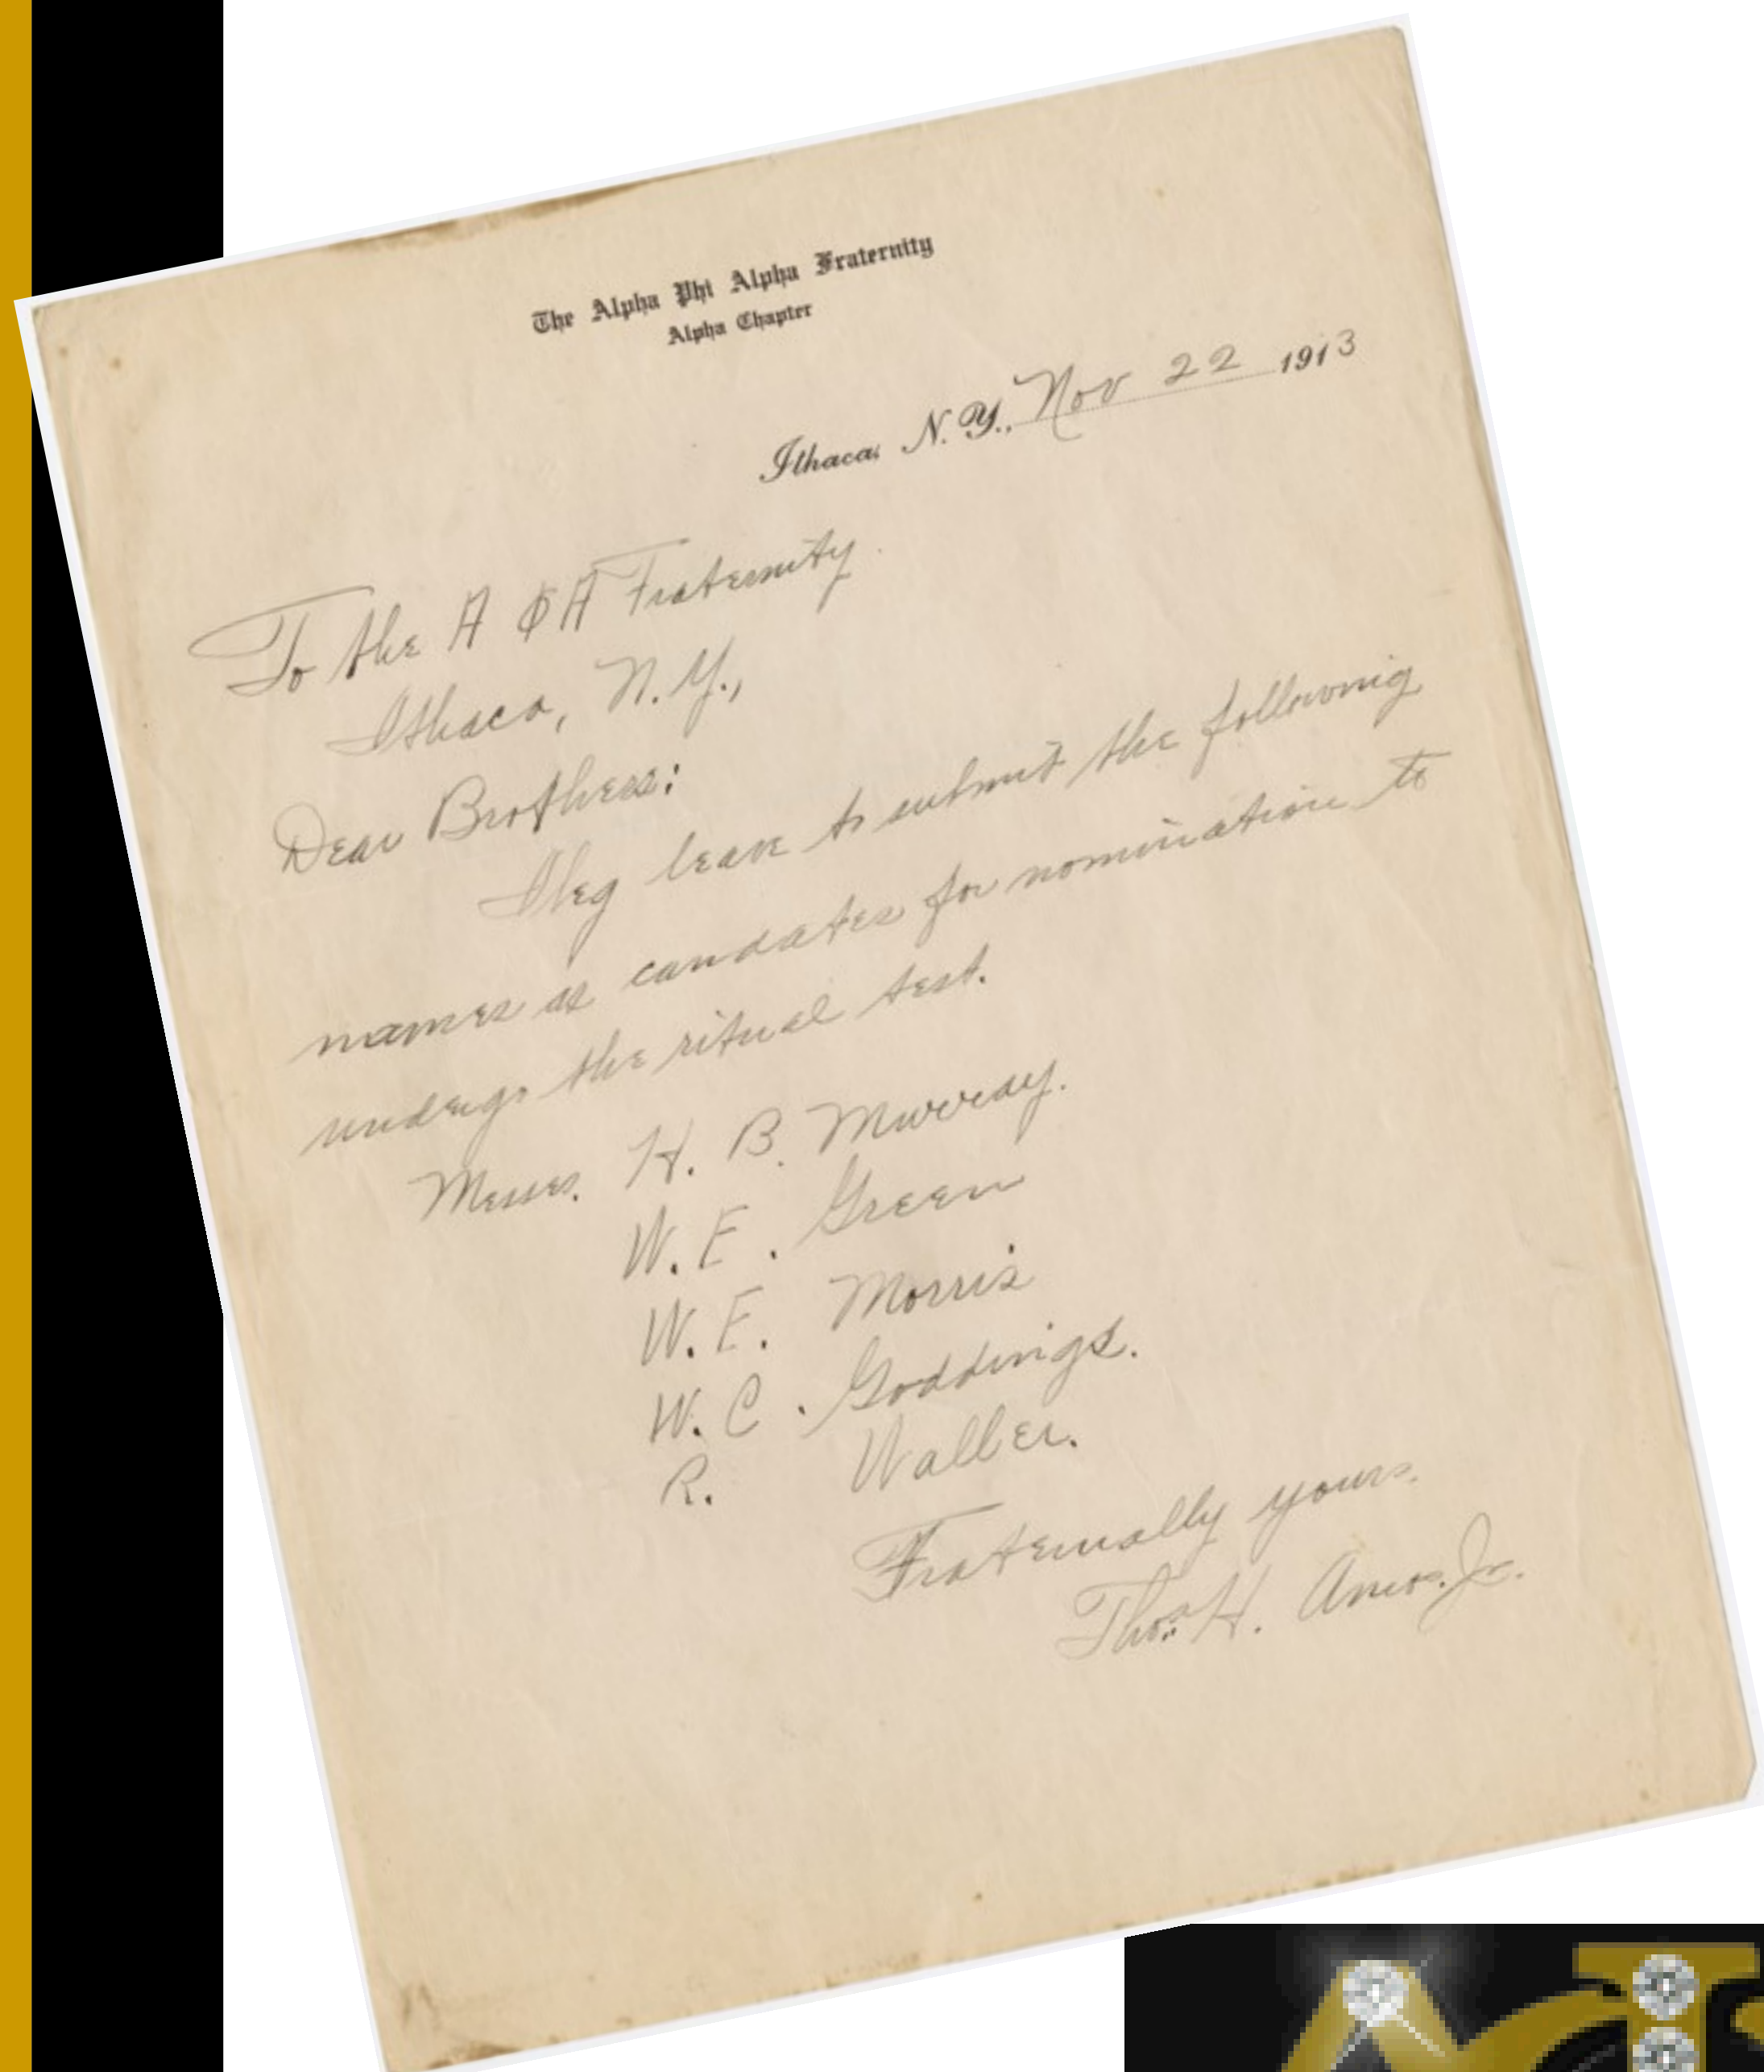 The Alpha Phi Alpha Fraternity
Alpha Chapter
Ithaca, N.Y., Nov 22 1913
To the A Φ A Fraternity
Ithaca, N.Y.,
Dear Brothers:
I beg leave to submit the following
names as candates for nomination to
undergo the ritual test.
Messrs. H. B. Murray.
W. E. Green
W. E. Morris
W. C. Goddings.
R. Waller.
Fraternally yours.
Thos. H. Amos. Jr.